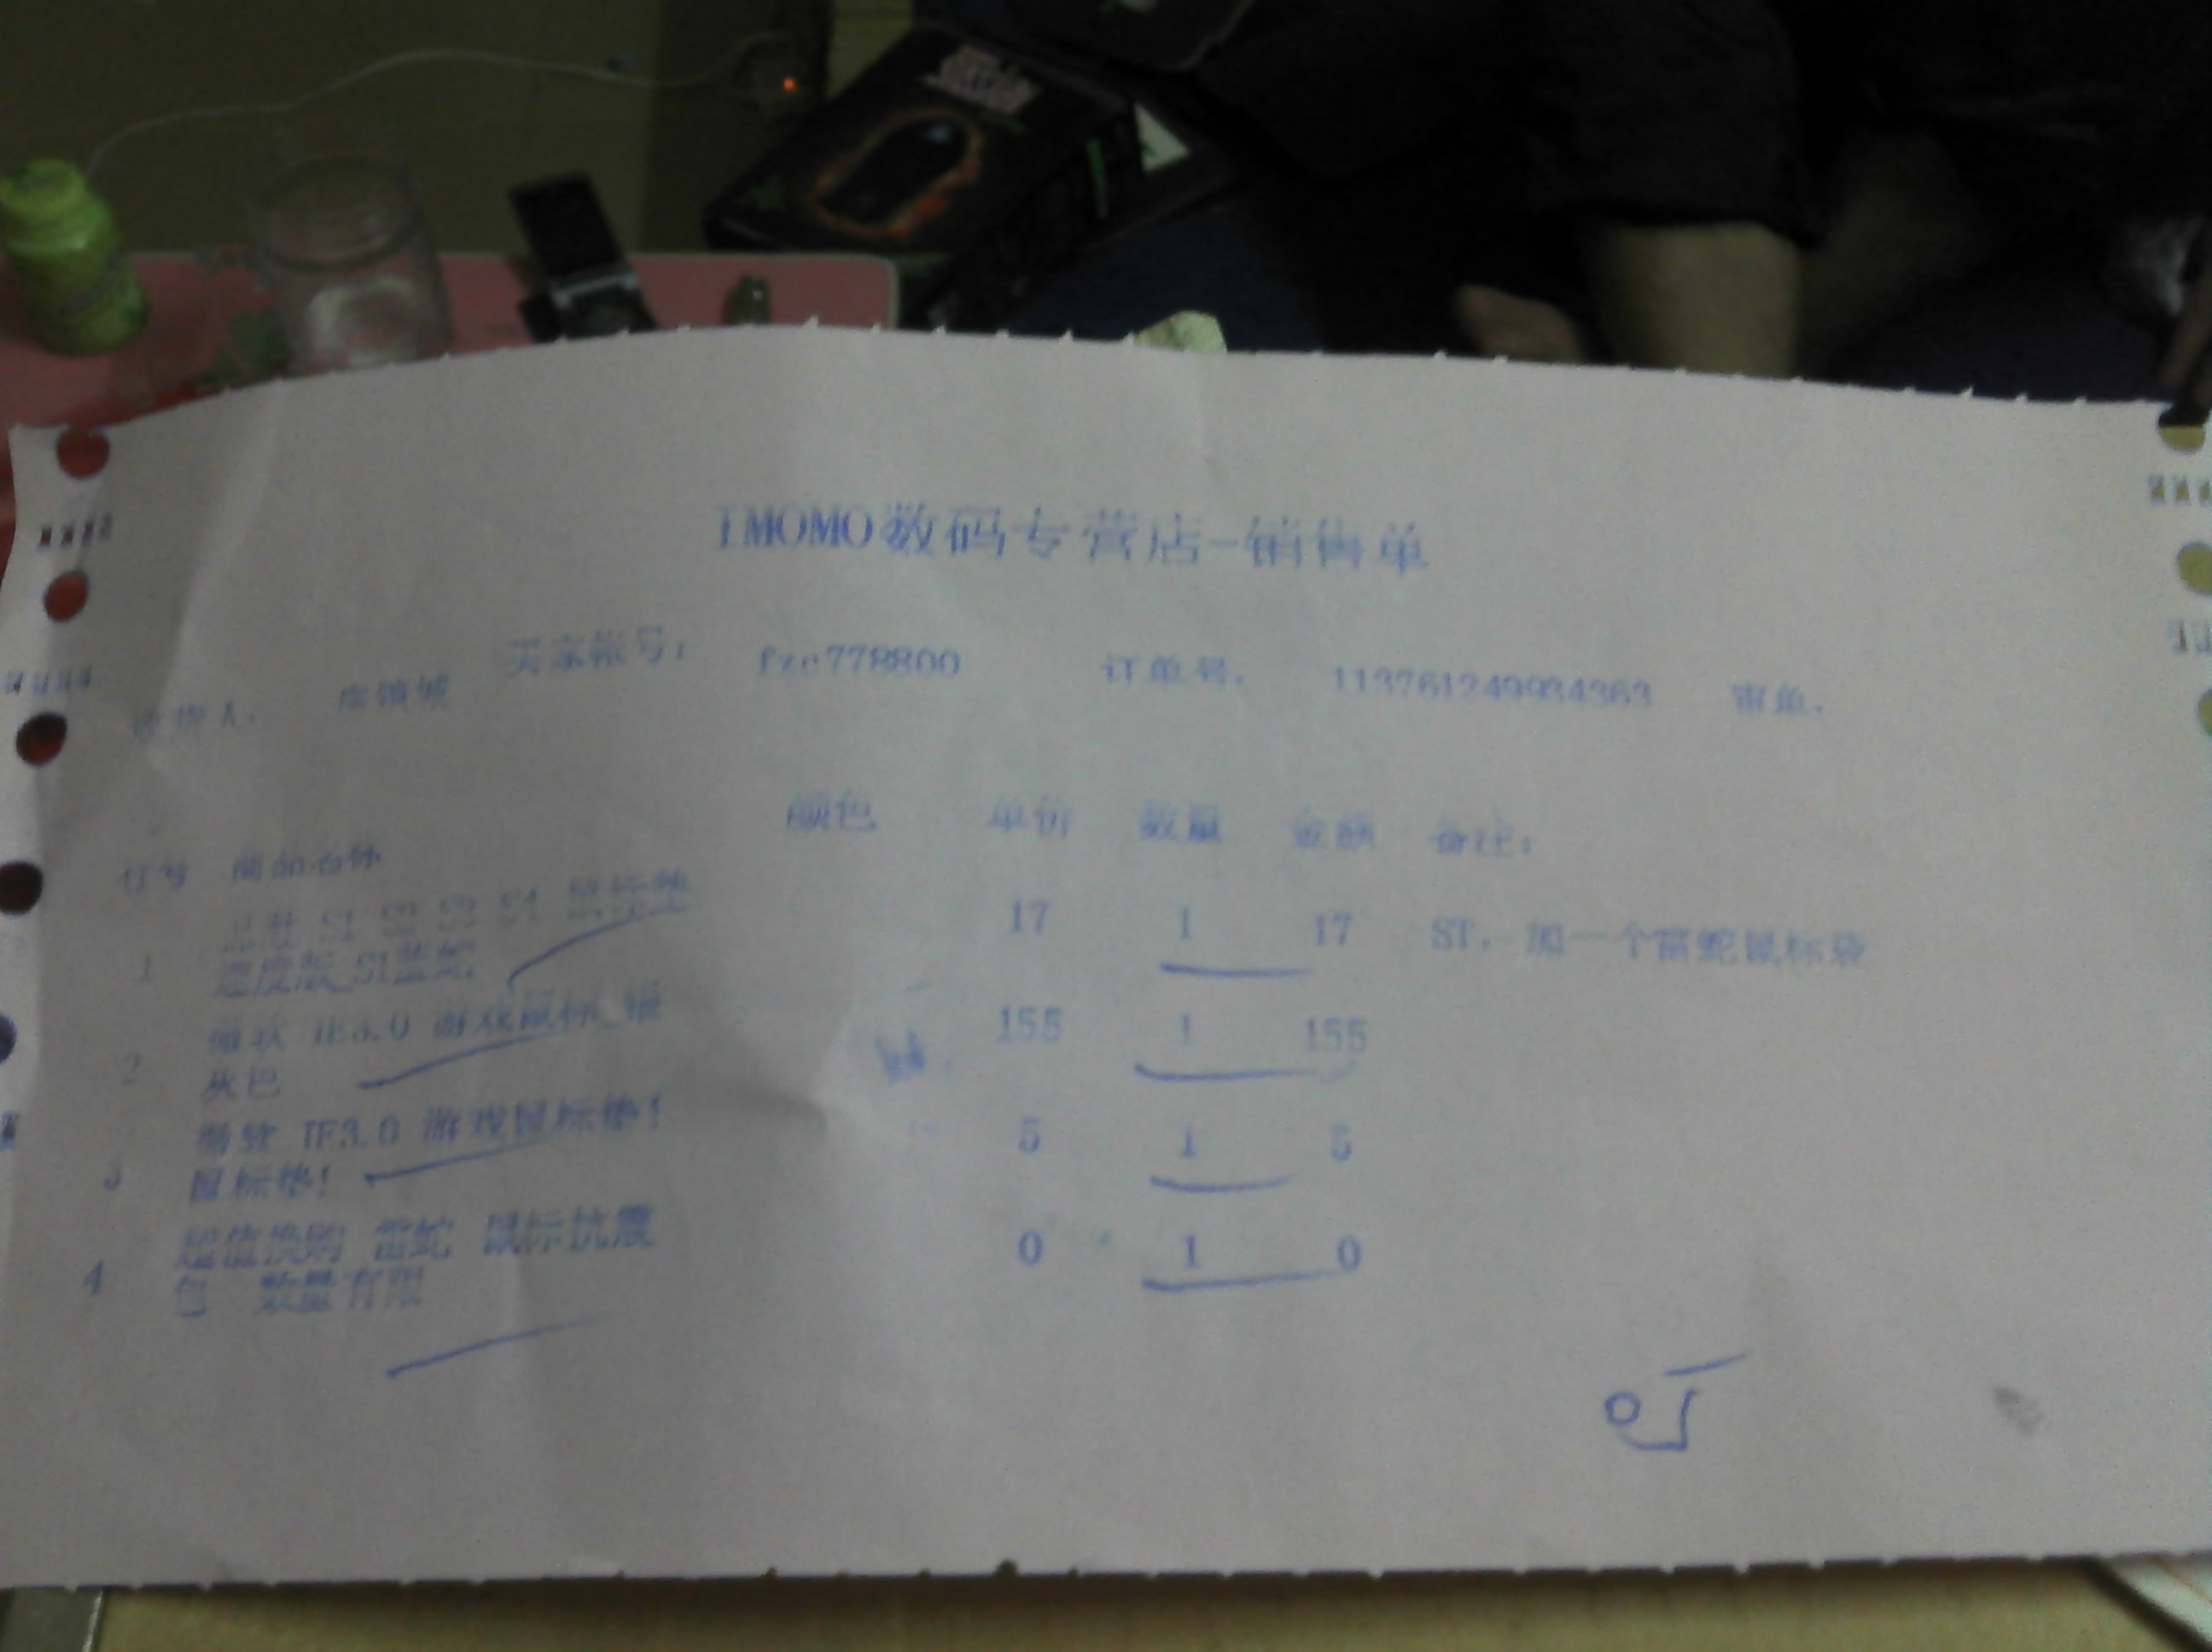 IMOMO数码专营店-销售单
买家帐号： fzc778800 订单号： 113761249934363 审单：
收货人：
颜色 单价 数量 金额 备注：
行号 商品名称
S1 S2 S3 S4 鼠标垫 17 1 17 ST，加一个雷蛇鼠标袋
1 速度版_S1蓝蛇
微软 IE3.0 游戏鼠标_银 155 1 155
2 灰色
微软 IE3.0 游戏鼠标垫！ 5 1 5
3 鼠标垫！
超值换购 雷蛇 鼠标抗震 0 1 0
4 包 数量有限